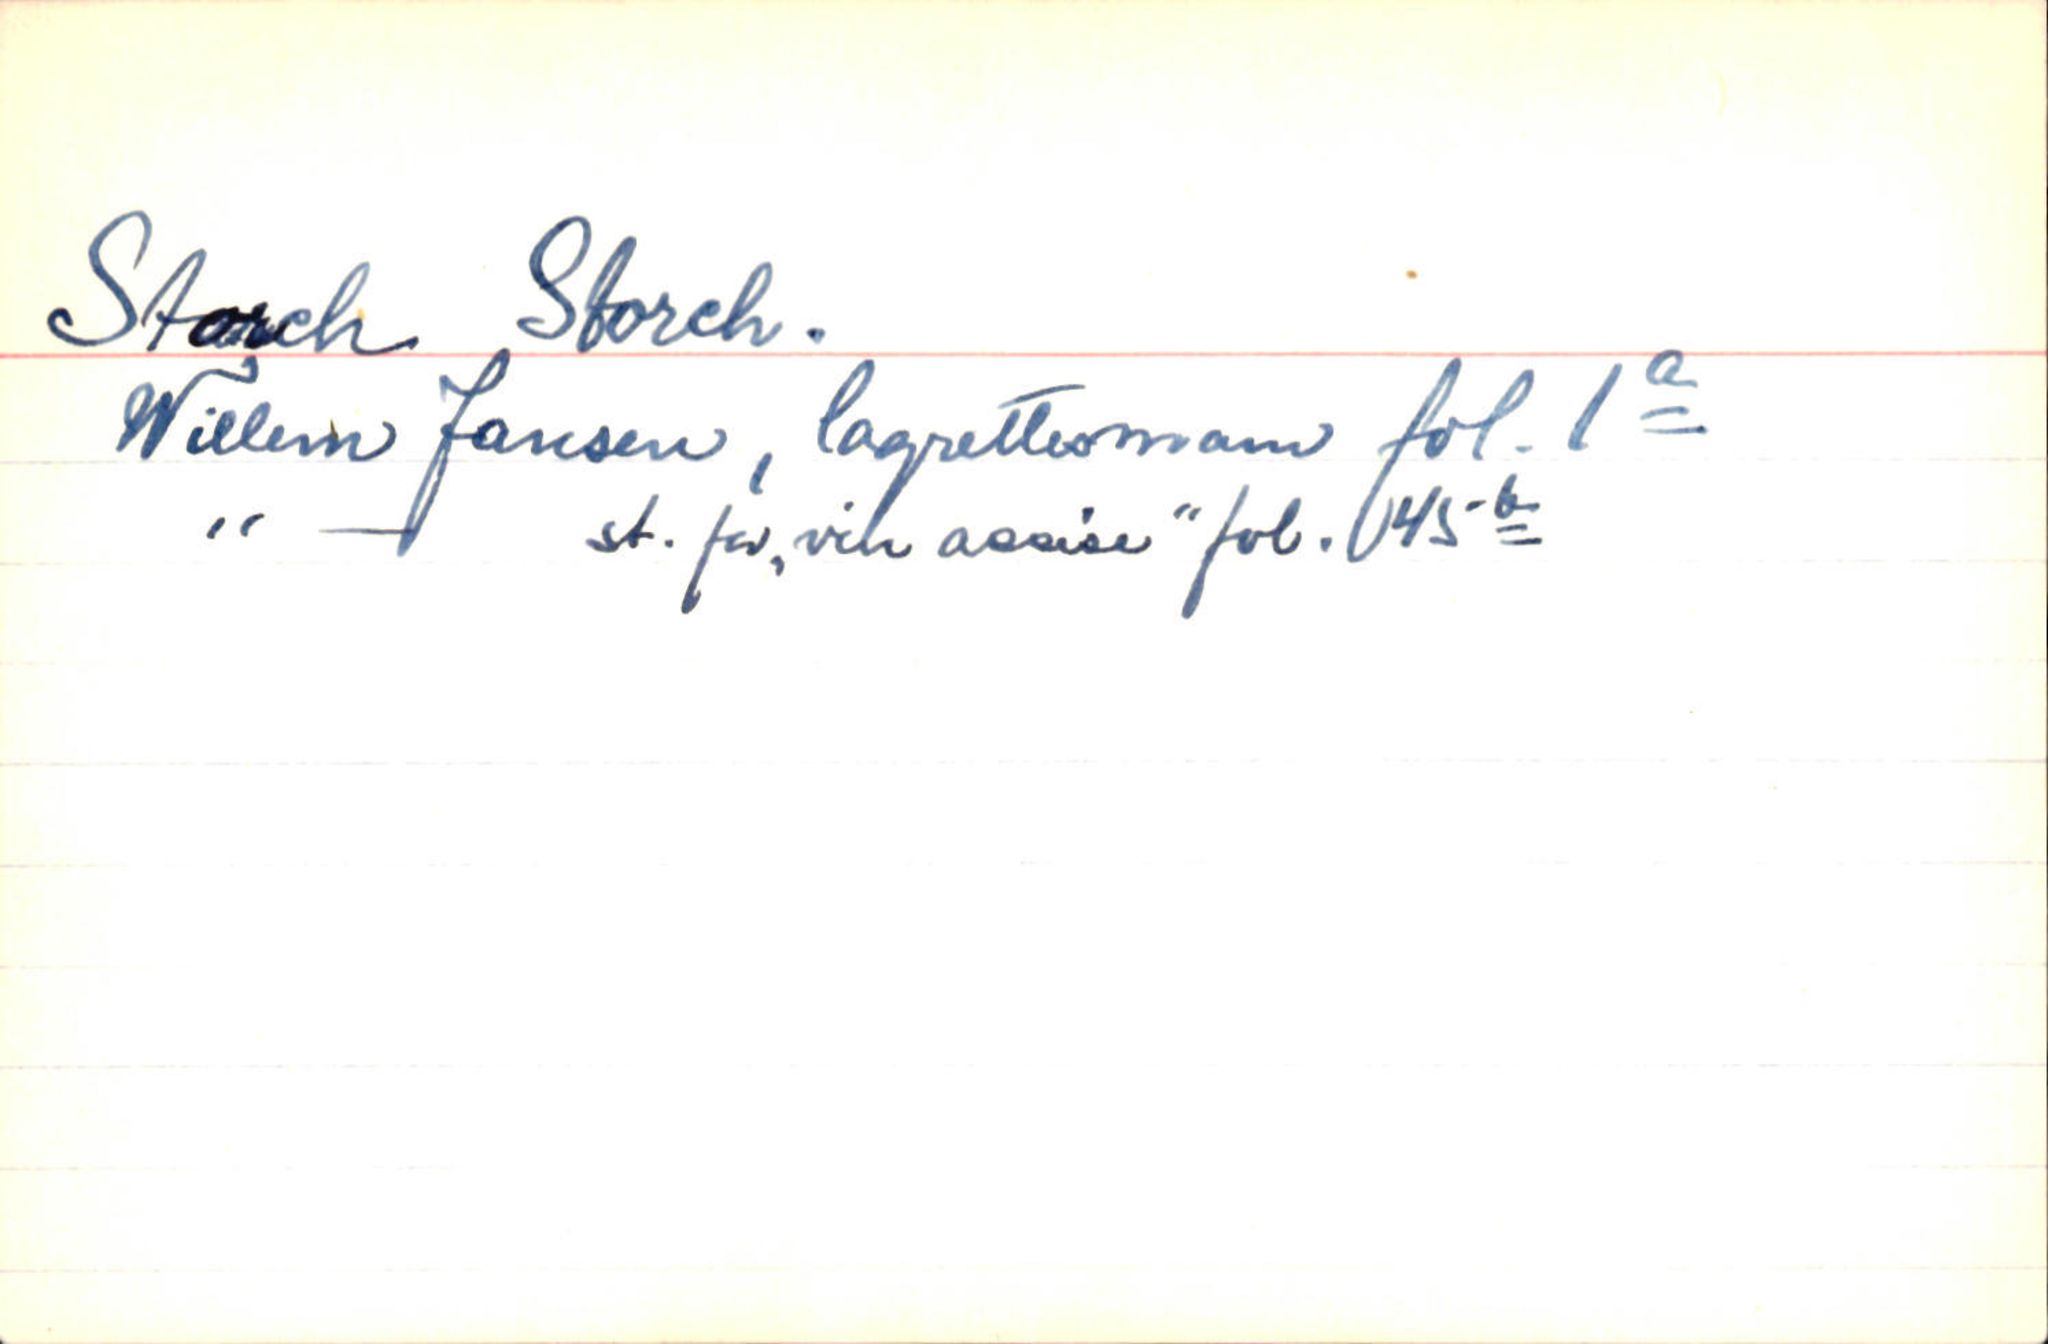 Storch Storch.
Willem Jansen, lagrettesmann fol. 1 a
" — st. for „vin accise" fol. 145 b